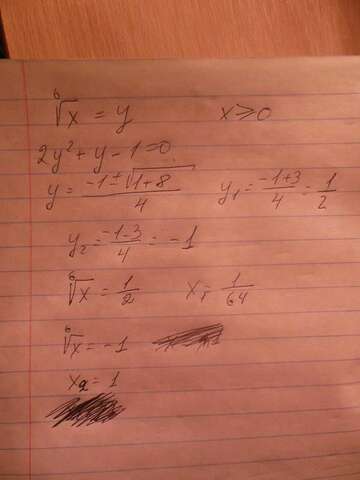 ⁶√x = y x ≥ 0
2y² + y - 1 = 0
y = (-1 ± √(1+8))/4 y₁ = (-1+3)/4 = 1/2
y₂ = (-1-3)/4 = -1
⁶√x = 1/2 x₁ = 1/64
⁶√x = -1
x₂ = 1